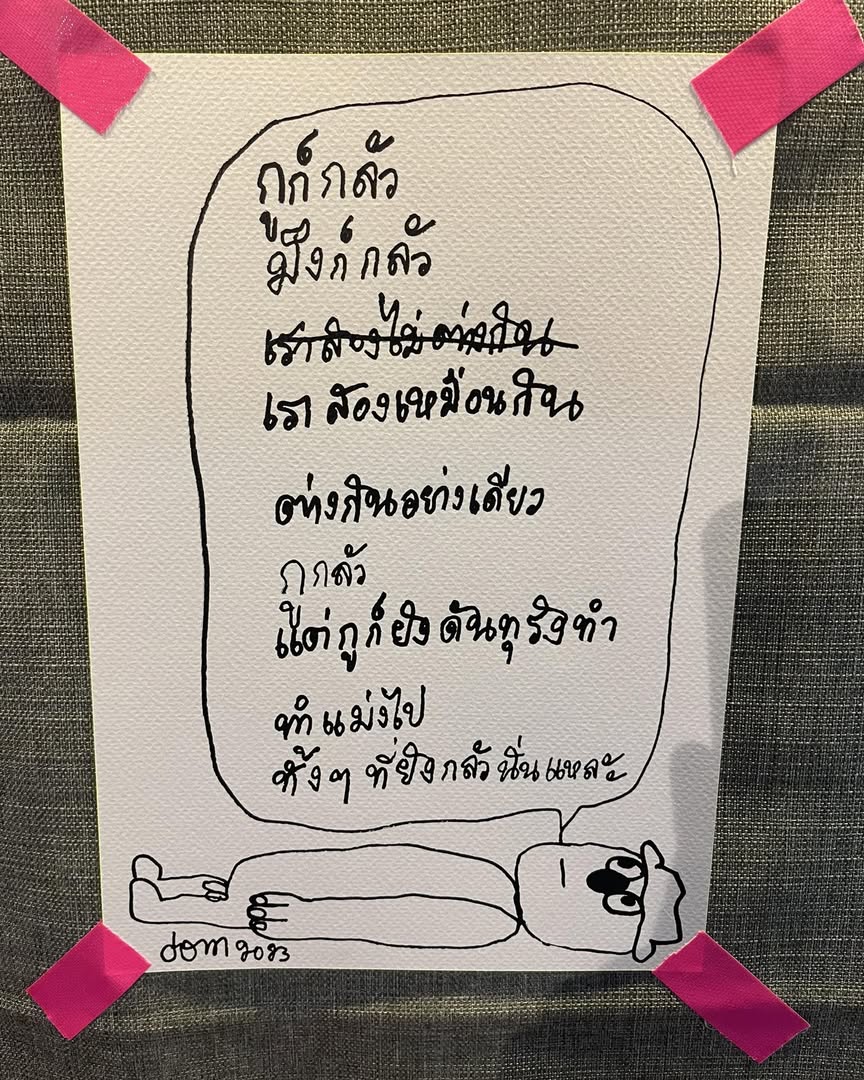 กูก็กลัว
มึงก็กลัว
เราสองไม่ต่างกัน
เราสองเหมือนกัน
ต่างกันอย่างเดียว
กูกลัว
แต่กูก็ยังดันทุรังทำ
ทำแม่งไป
ทั้งๆ ที่ยังกลัวนั่นแหละ
dom 2023